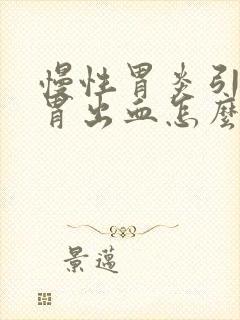 慢性胃炎引
胃出血怎麼
景邁